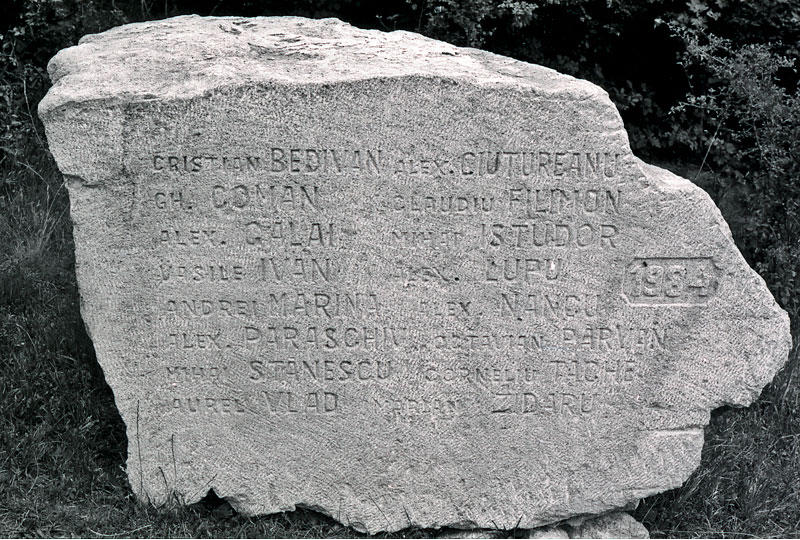 CRISTIAN BEDIVAN ALEX. CIUTUREANU
GH. COMAN CLAUDIU FILIMON
ALEX. GALAI MIHAI ISTUDOR
VASILE IVAN ALEX. LUPU
1984
ANDREI MARINA ALEX. NANCU
ALEX. PARASCHIV OCTAVIAN PARVAN
MIHAI STANESCU CORNELIU TACHE
AUREL VLAD MARIAN ZIDARU